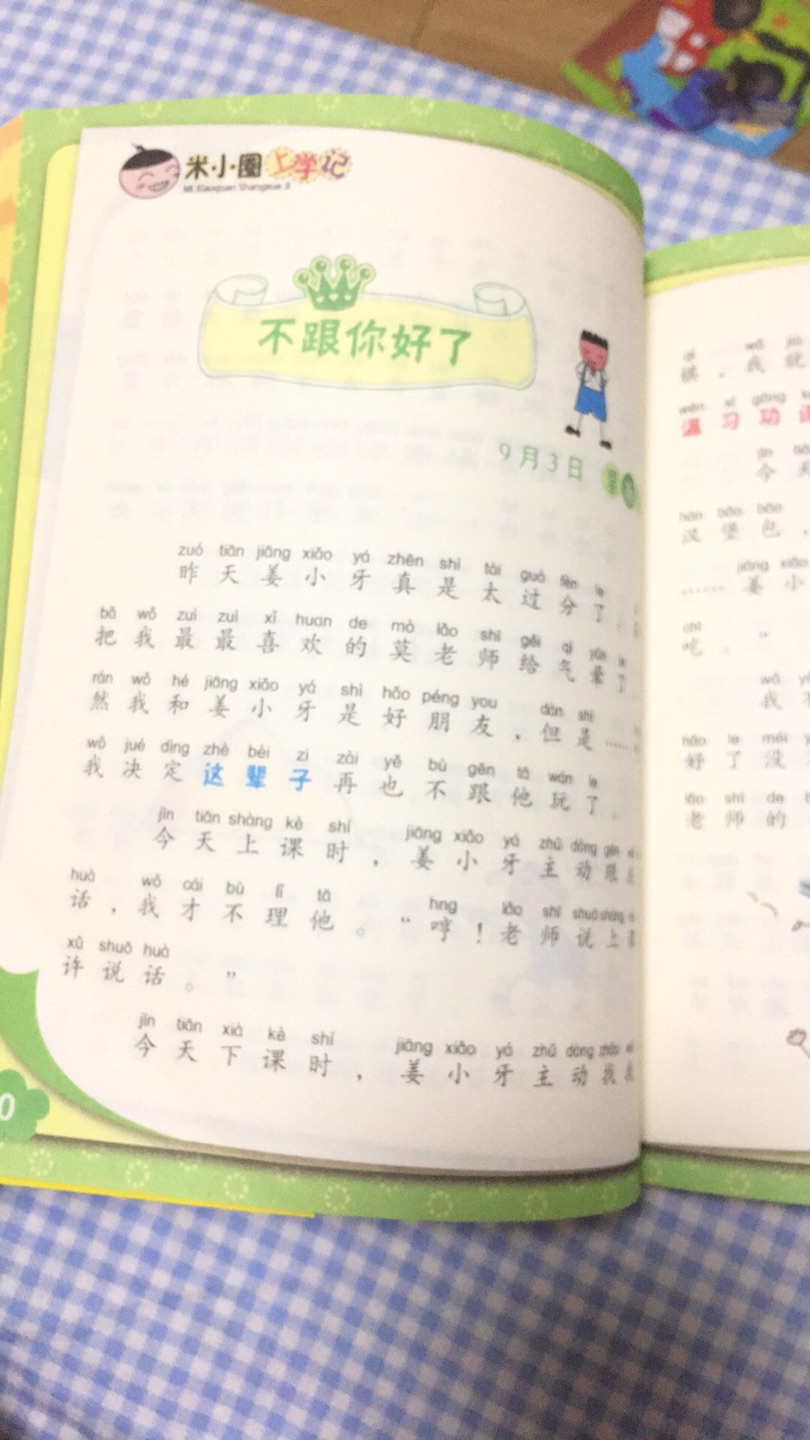 米小圈上学记
Mi Xiaoquan Shangxue Ji
不跟你好了
9月3日
zuó tiān jiāng xiǎo yá zhēn shì tài guò fèn le
昨天姜小牙真是太过分了，
bǎ wǒ zuì zuì xǐ huan de mò lǎo shī gěi qì yūn le
把我最最喜欢的莫老师给气晕了
rán wǒ hé jiāng xiǎo yá shì hǎo péng you dàn shì
然我和姜小牙是好朋友，但是……
wǒ jué dìng zhè bèi zi zài yě bù gēn tā wán le
我决定这辈子再也不跟他玩了。
jīn tiān shàng kè shí jiāng xiǎo yá zhǔ dòng gēn
今天上课时，姜小牙主动跟我
huà wǒ cái bù lǐ tā hng lǎo shī shuō shàng
话，我才不理他。“哼！老师说上课
xǔ shuō huà
许说话。”
jīn tiān xià kè shí jiāng xiǎo yá zhǔ dòng zhǎo
今天下课时，姜小牙主动找我
0
qí wǒ jiù
棋，我就
wēn xí gōng
温习功课
jīn
今天
hàn bǎo bāo
汉堡包，
jiāng xiǎo
……姜小
chī
吃。”
wǒ
我
hǎo le méi
好了没
lǎo shī de
老师的